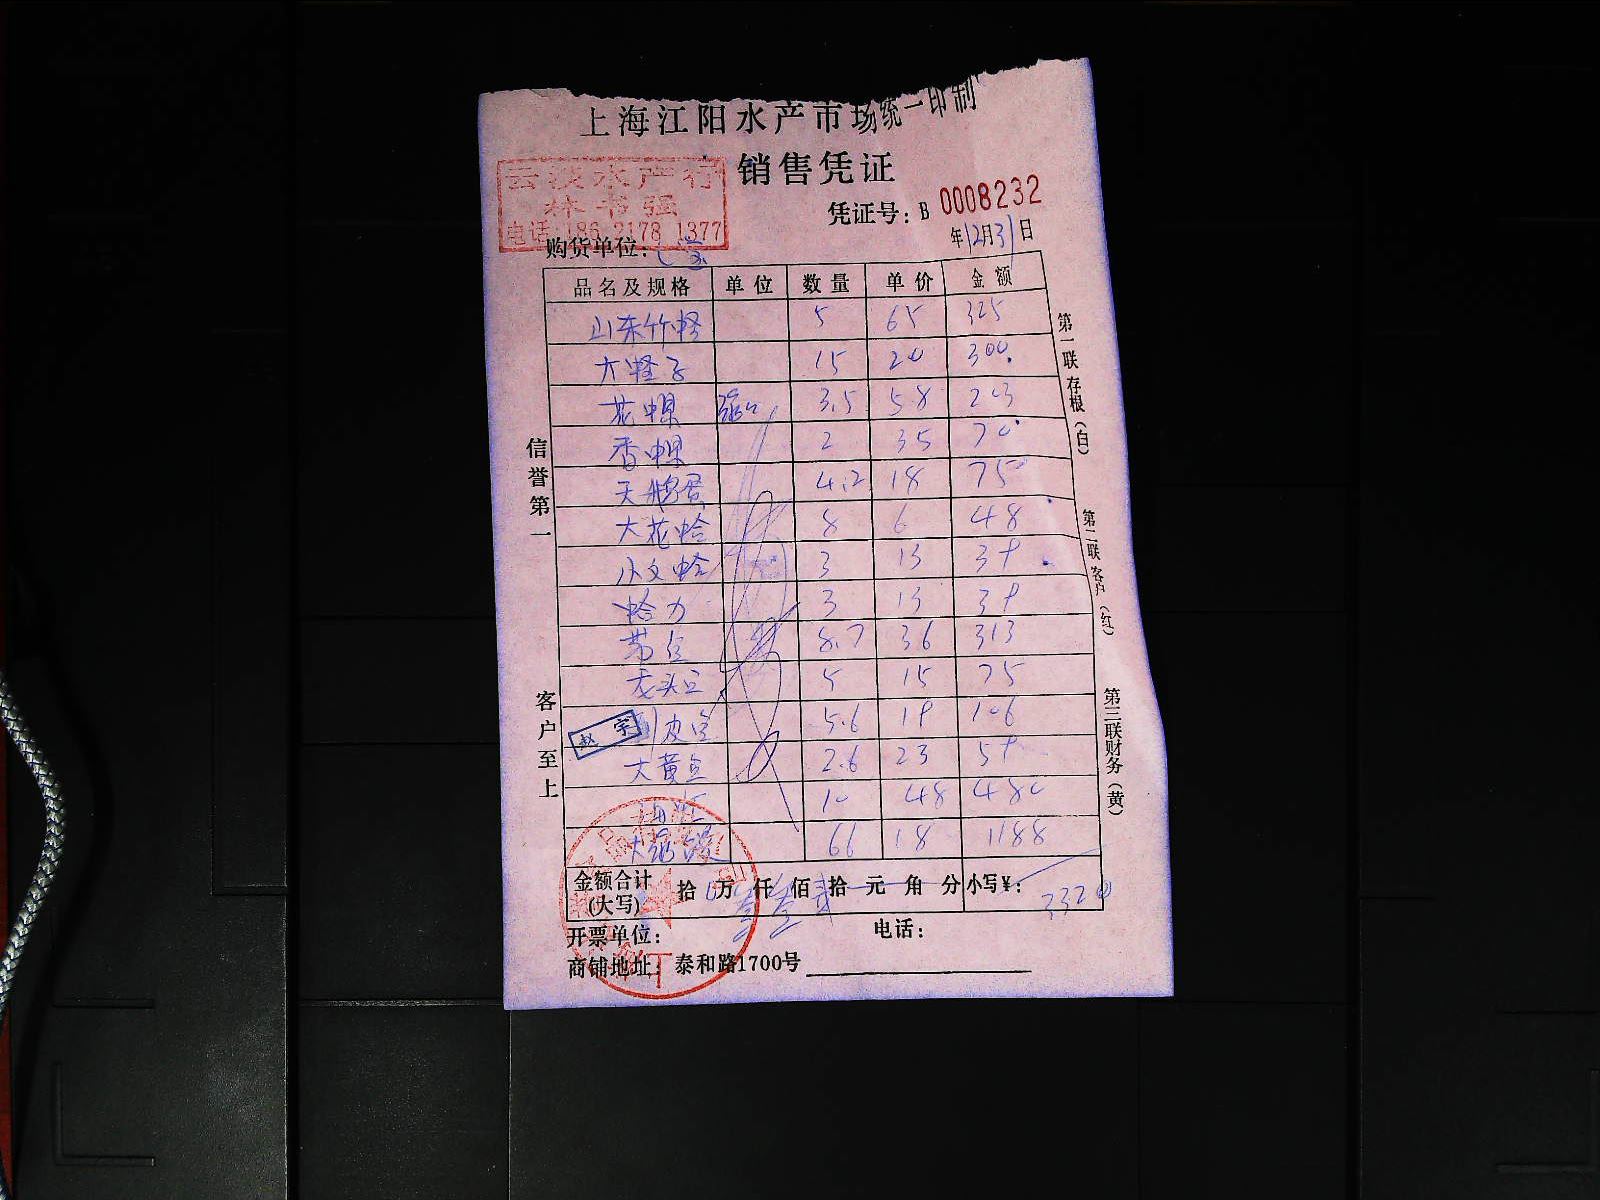 上海江阳水产市场统一印制
销售凭证
云波水产行
林书强
电话:186 2178 1377
凭证号：B 0008232
年12月31日
购货单位：
品名及规格 单位 数量 单价 金额
山东竹蛏 5 65 325
大蛏子 15 20 300
花螺 3.5 58 203
香螺 2 35 70
天鹅蛋 4.2 18 75
大花蛤 8 6 48
小文蛤 3 13 39
蛤力 3 13 39
带鱼 8.7 36 313
龙头鱼 5 15 75
皮鱼 5.6 19 106
大黄鱼 2.6 23 59
10 48 480
大 66 18 1188
赵宇
金额合计(大写) 拾 万 仟 佰 拾 元 角 分 小写¥：3320
开票单位： 电话：
商铺地址：泰和路1700号
信誉第一
客户至上
第一联存根（白）
第二联客户（红）
第三联财务（黄）